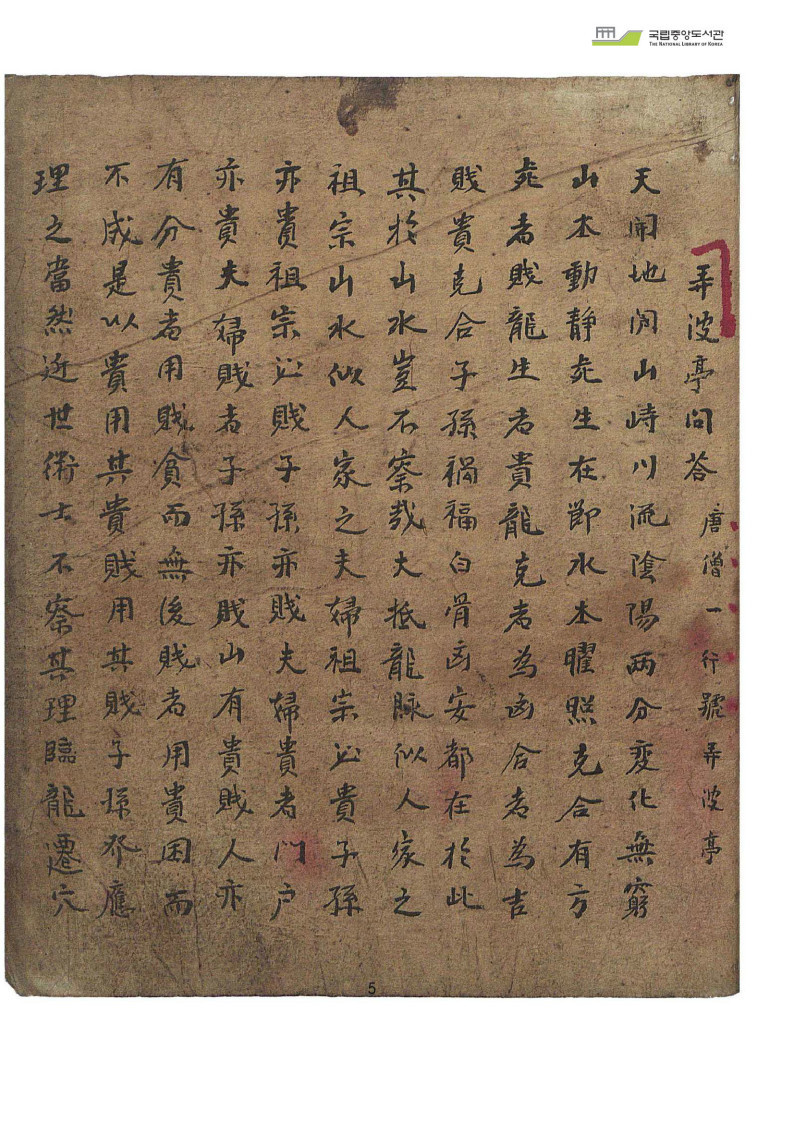 국립중앙도서관
THE NATIONAL LIBRARY OF KOREA
弄波亭問荅 唐僧一行號弄波亭
天開地闢山峙川流陰陽兩分変化無窮
山本動静死生在節水本曜照克合有方
死者賎龍生者貴龍克者為凶合者為吉
賎貴克合子孫禍福白骨凶安都在於此
其於山水豈不察哉大抵龍脉似人家之
祖宗山水似人家之夫婦祖宗必貴子孫
亦貴祖宗必賎子孫亦賎夫婦貴者門户
亦貴夫婦賎者子孫亦賎山有貴賎人亦
有分貴者用賎貧而無後賎者用貴困而
不成是以貴用其貴賎用其賎子孫發應
理之當然近世術士不察其理臨龍遷穴
5